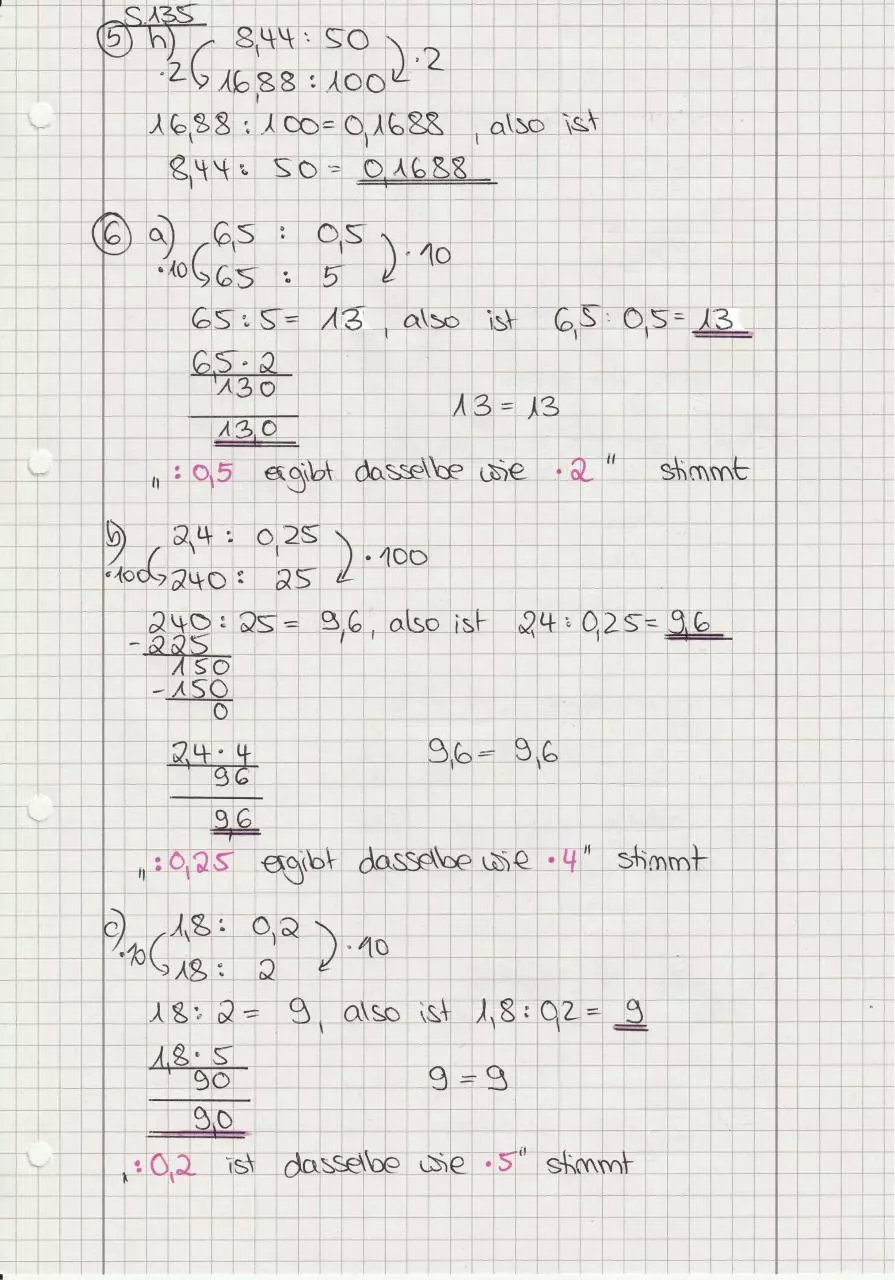 S. 135
5 h) 8,44 : 50
·2 16,88 : 100 ·2
16,88 : 100 = 0,1688 , also ist
8,44 : 50 = 0,1688
6 a) 6,5 : 0,5
·10 65 : 5 ·10
65 : 5 = 13 , also ist 6,5 : 0,5 = 13
6,5 · 2
130
13 = 13
13,0
„ : 0,5 ergibt dasselbe wie · 2 " stimmt
b) 2,4 : 0,25
·100 240 : 25 ·100
240 : 25 = 9,6 , also ist 2,4 : 0,25 = 9,6
- 225
150
- 150
0
2,4 · 4 9,6 = 9,6
96
9,6
„ : 0,25 ergibt dasselbe wie · 4 " stimmt
c) 1,8 : 0,2
·10 18 : 2 ·10
18 : 2 = 9 , also ist 1,8 : 0,2 = 9
1,8 · 5
90 9 = 9
9,0
„ : 0,2 ist dasselbe wie · 5 " stimmt